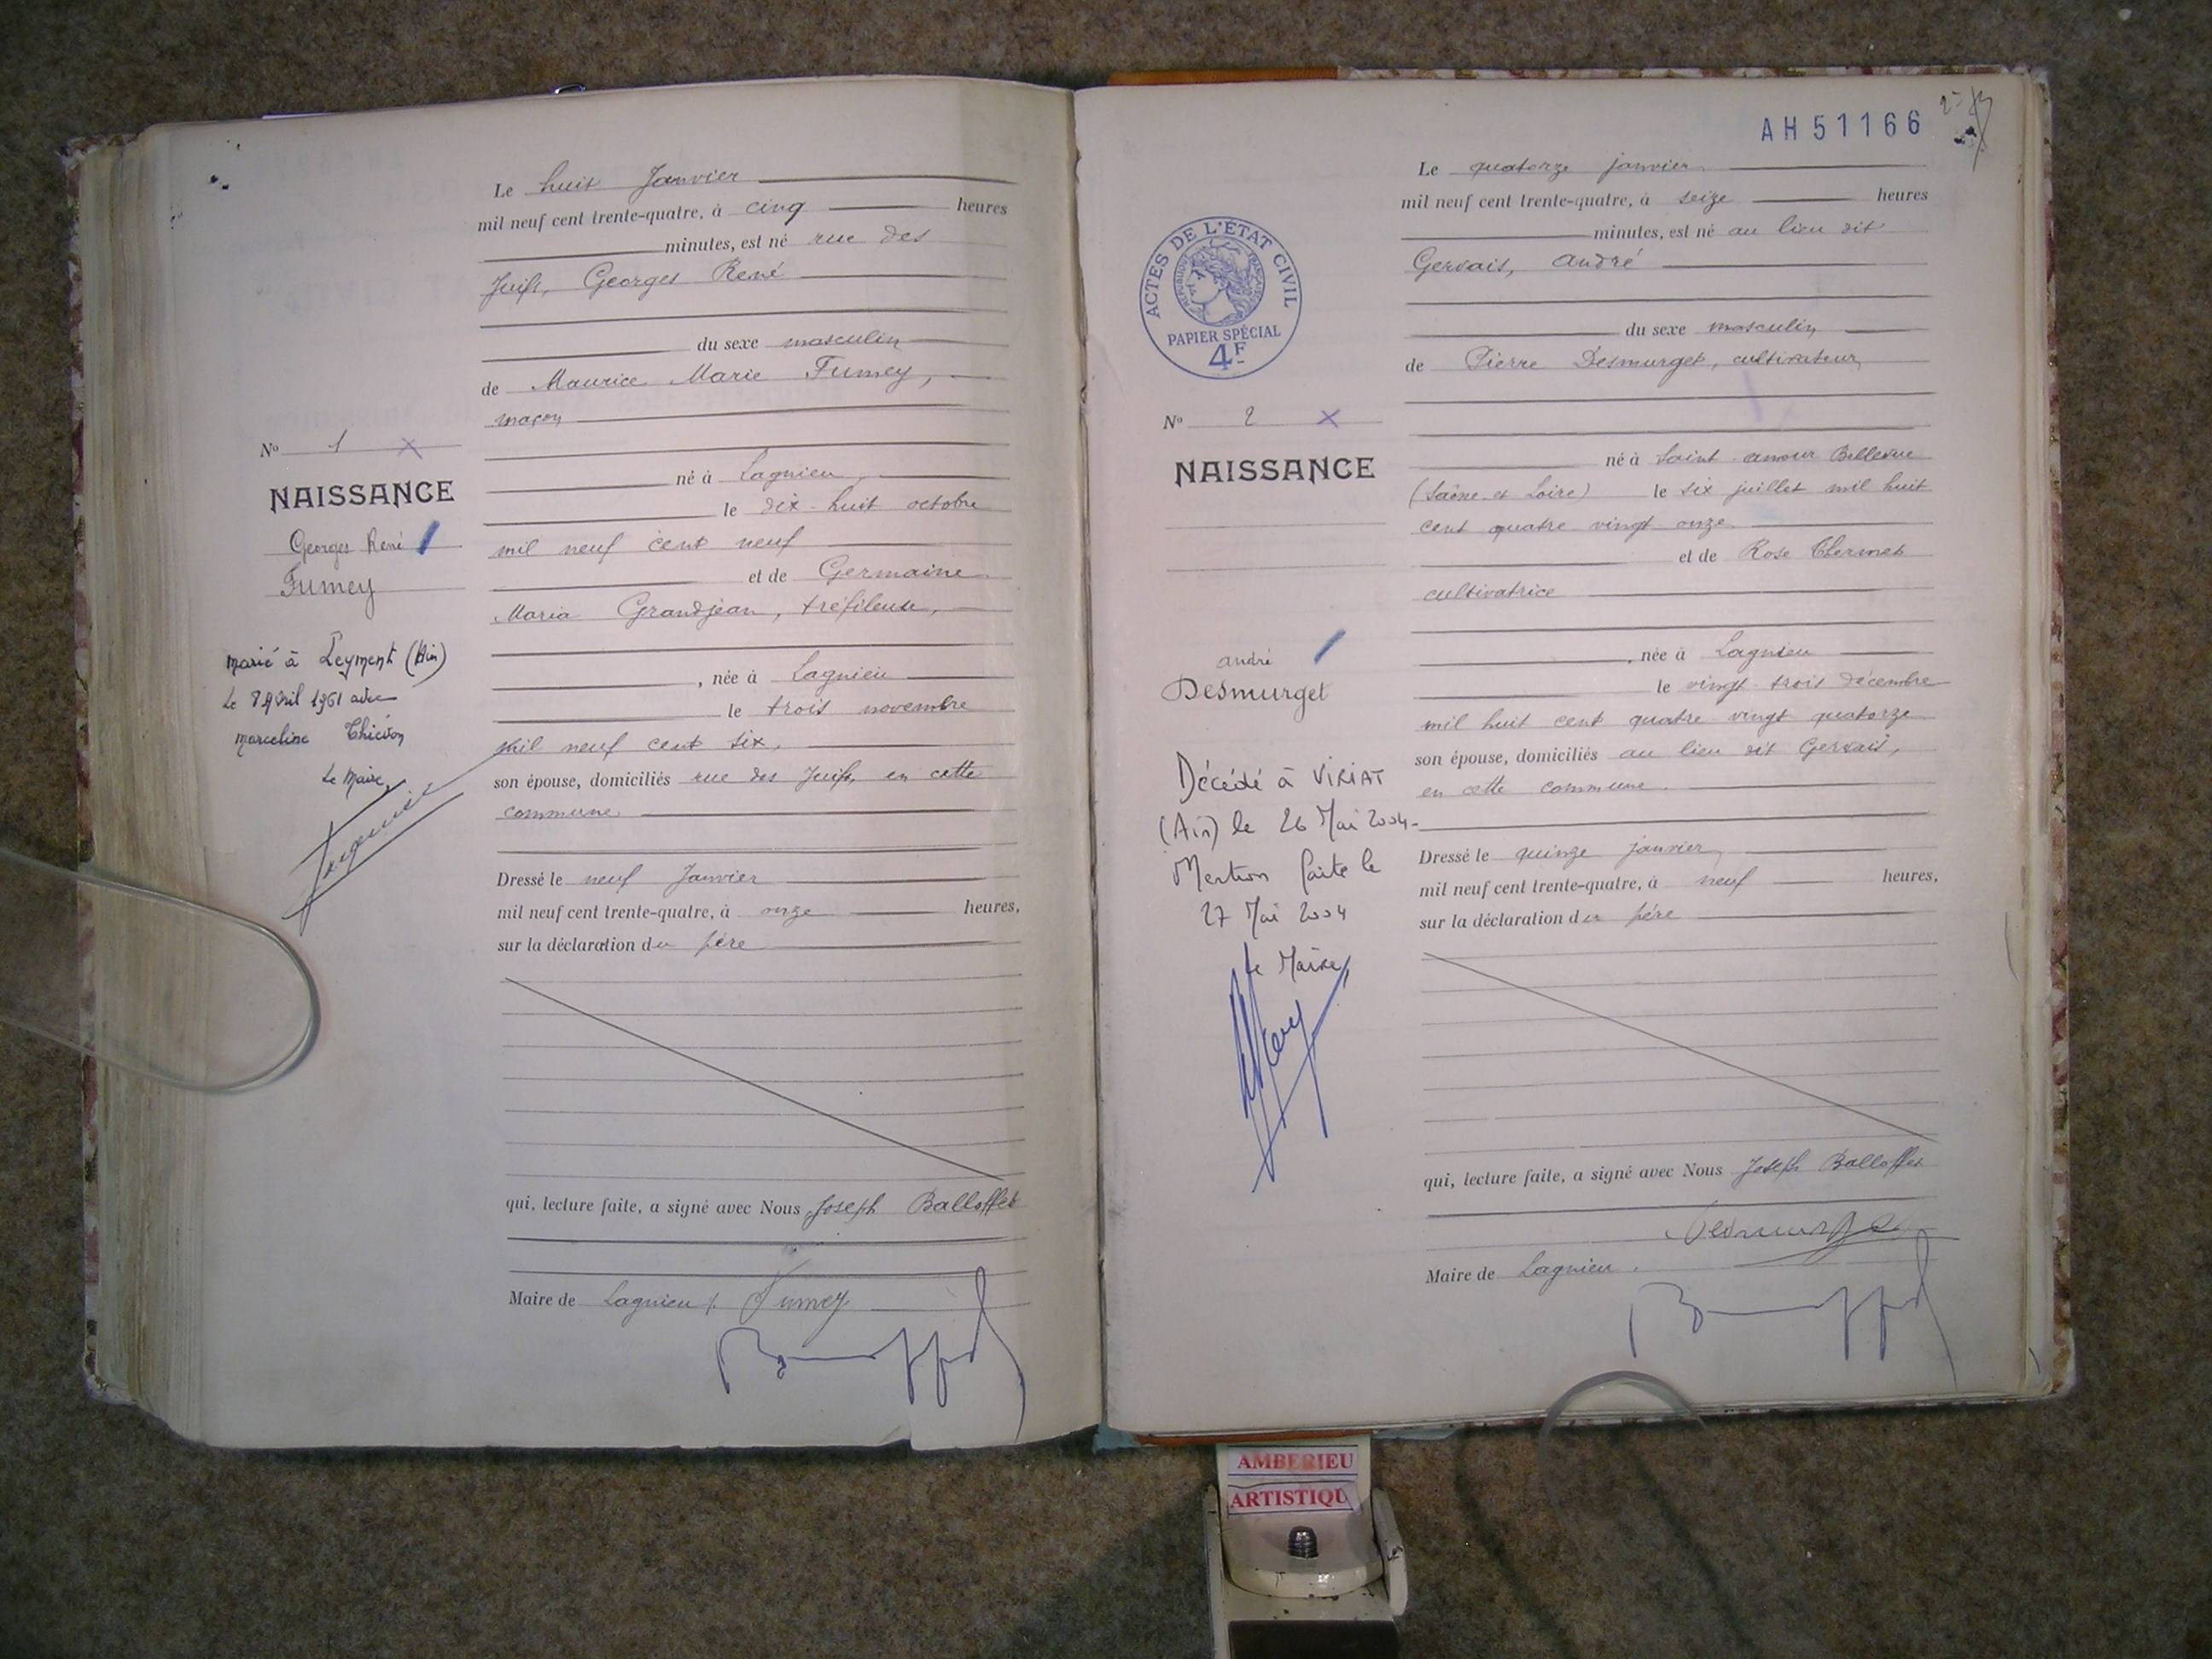 Le huit Janvier
mil neuf cent trente-quatre, à cinq heures
minutes, est né rue des
Juifs, Georges René
du sexe masculin
de Maurice Marie Fumey,
maçon
né à Lagnieu
le dix-huit octobre
mil neuf cent neuf
et de Germaine
Maria Grandjean, tréfileuse,
, née à Lagnieu
le trois novembre
mil neuf cent six,
son épouse, domiciliés rue des Juifs, en cette
commune.
Dressé le neuf Janvier
mil neuf cent trente-quatre, à onze heures,
sur la déclaration du père
qui, lecture faite, a signé avec Nous Joseph Balloffet
Maire de Lagnieu. Fumey
No 1 X
NAISSANCE
Georges René
Fumey
marié à Leyment (Ain)
le 8 Avril 1961 avec
marceline
Le Maire,
AH 51166
ACTES DE L'ÉTAT CIVIL
RÉPUBLIQUE FRANÇAISE
PAPIER SPÉCIAL
4F
No 2 X
NAISSANCE
andré
Desmurget
Décédé à VIRIAT
(Ain) le 26 Mai 2004-
Mention faite le
27 Mai 2004
Le Maire,
Le quatorze janvier
mil neuf cent trente-quatre, à seize heures
minutes, est né au lieu dit
Gervais, andré
du sexe masculin
de Pierre Desmurget, cultivateur,
né à Saint-amour Bellevue
(Saône et Loire) le six juillet mil huit
cent quatre vingt onze
et de Rose Thermet
cultivatrice
, née à Lagnieu
le vingt-trois décembre
mil huit cent quatre vingt quatorze
son épouse, domiciliés au lieu dit Gervais,
en cette commune.
Dressé le quinze janvier,
mil neuf cent trente-quatre, à neuf heures,
sur la déclaration du père
qui, lecture faite, a signé avec Nous Joseph Balloffet
Desmurget
Maire de Lagnieu.
AMBERIEU
ARTISTIQU